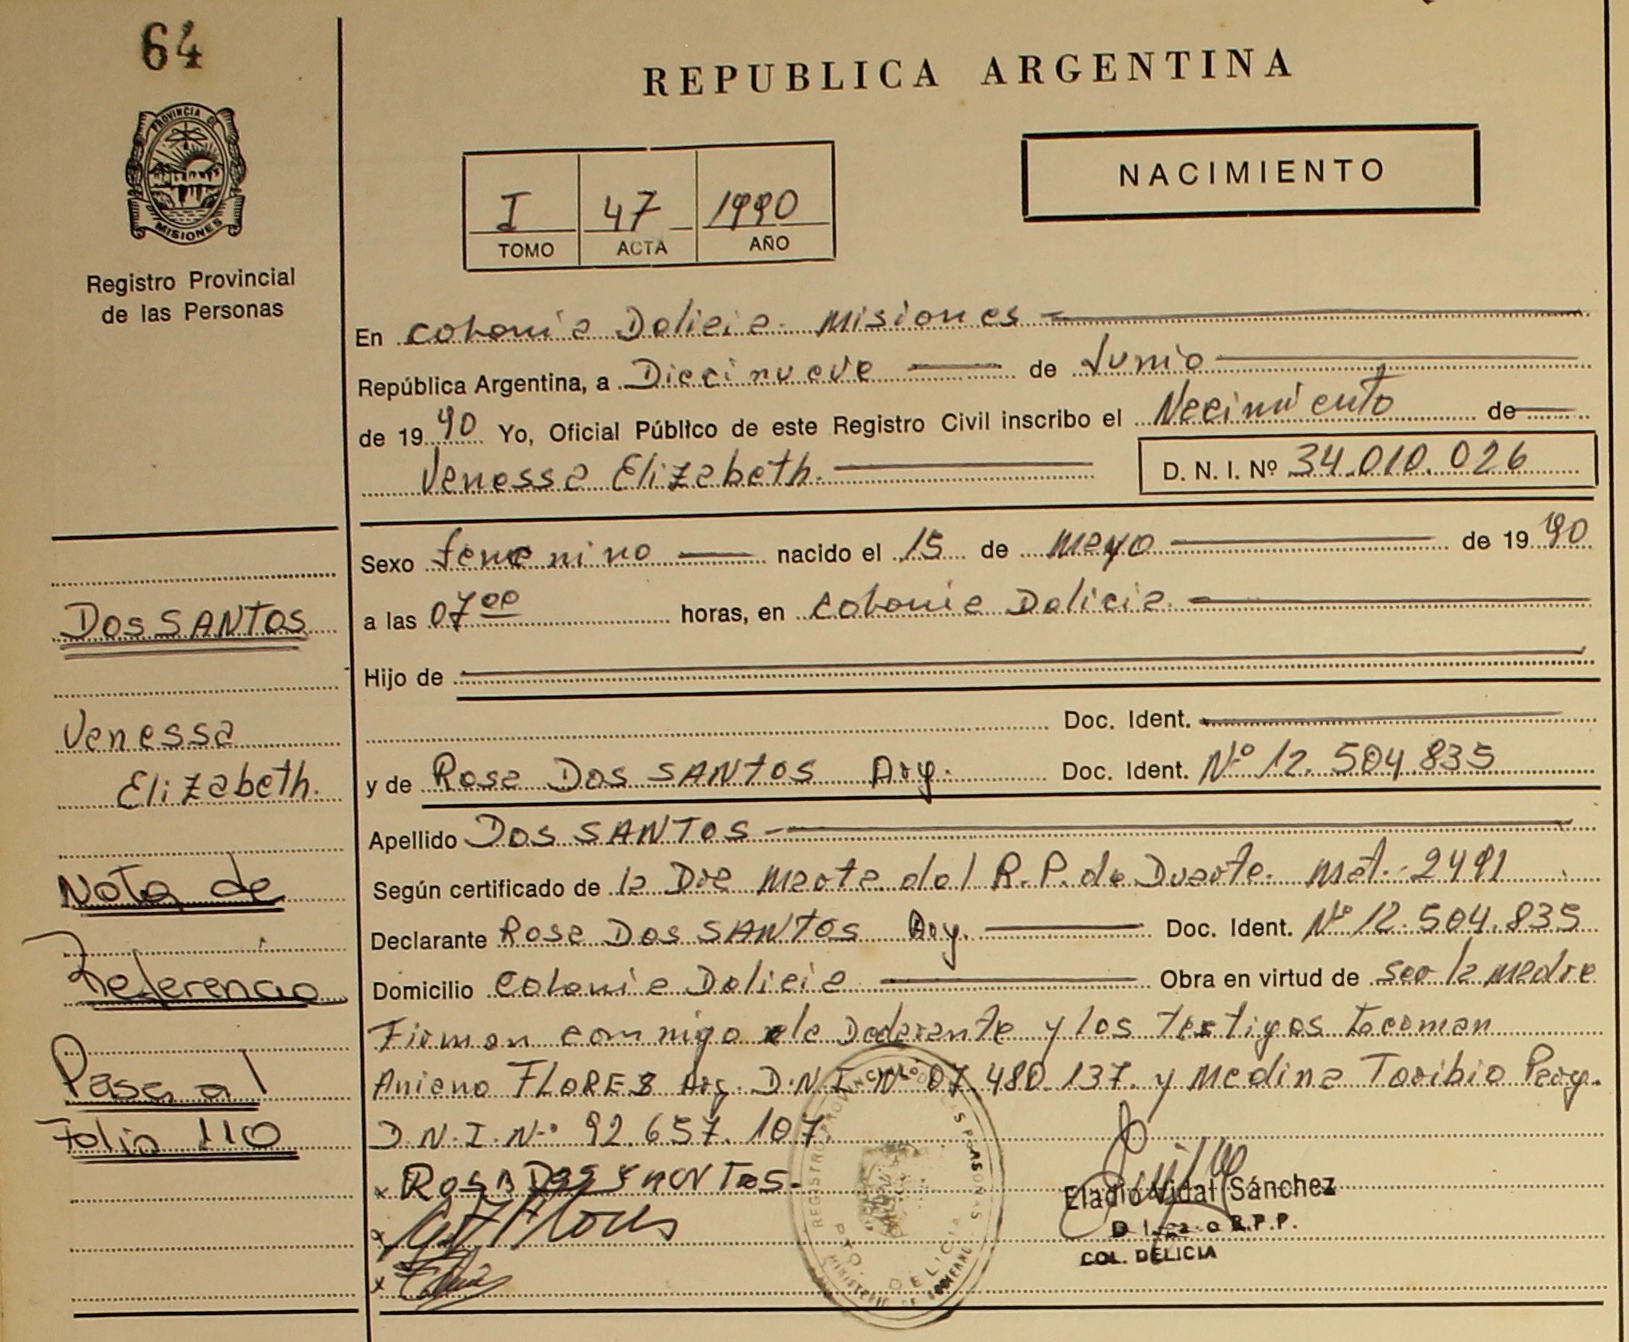 64
REPUBLICA ARGENTINA
PROVINCIA DE
MISIONES
Registro Provincial
de las Personas
I 47 1990
TOMO ACTA AÑO
NACIMIENTO
En Colonia Delicia. Misiones
República Argentina, a Diecinueve de Junio
de 1990 Yo, Oficial Público de este Registro Civil inscribo el Nacimiento de
Vanessa Elizabeth. D. N. I. Nº 34.010.026
Sexo femenino nacido el 15 de Mayo de 1990
a las 07 00 horas, en Colonia Delicia.
Hijo de
Doc. Ident.
y de Rosa Dos SANTOS Arg. Doc. Ident. Nº 12.504.835
Apellido Dos SANTOS
Según certificado de la Dra Marta del R.P. de Duarte. Mat. 2491
Declarante Rosa Dos SANTOS Arg. Doc. Ident. Nº 12.504.835
Domicilio Colonia Delicia Obra en virtud de ser la madre
Firman conmigo la y los testigos
FLORES Arg. D.N.I. Nº 07.480.137. y Medina Toribio
D.N.I. Nº 92.657.107.
x Rosa
x Flores
x
Eladio Vidal Sánchez
R.P.P.
COL. DELICIA
PTO. DELICIA
Dos SANTOS
Vanessa
Elizabeth.
Nota de
Referencia
Pasa al
Folio 110